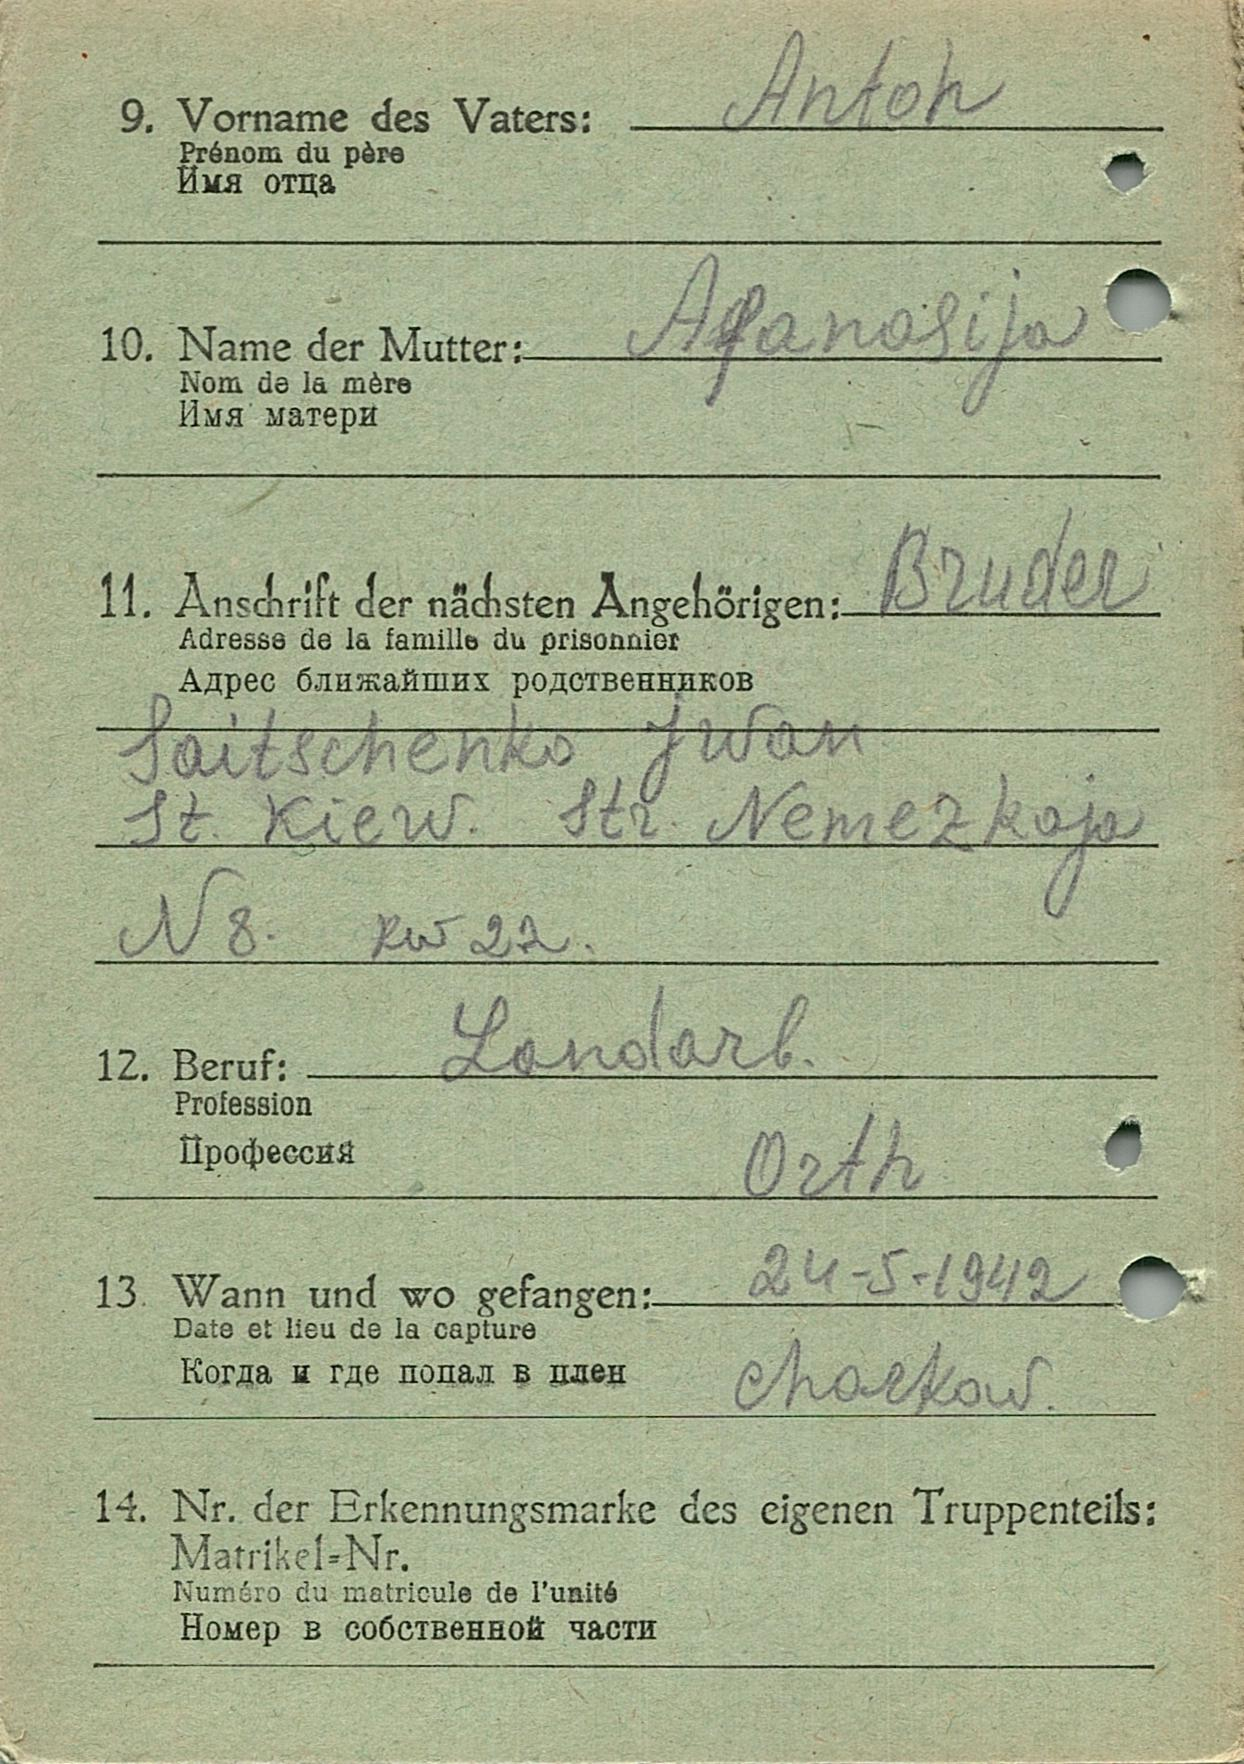 9. Vorname des Vaters: Anton
Prénom du père
Имя отца
10. Name der Mutter: Afanasija
Nom de la mère
Имя матери
11. Anschrift der nächsten Angehörigen: Bruder
Adresse de la famille du prisonnier
Адрес ближайших родственников
Saitschenko Jwan
St. Kiew. Str. Nemezkaja
N 8. kw 22.
12. Beruf: Landarb.
Profession
Профессия
Orth
13. Wann und wo gefangen: 24-5-1942
Date et lieu de la capture
Когда и где попал в плен
Charkow.
14. Nr. der Erkennungsmarke des eigenen Truppenteils:
Matrikel=Nr.
Numéro du matricule de l'unité
Номер в собственной части